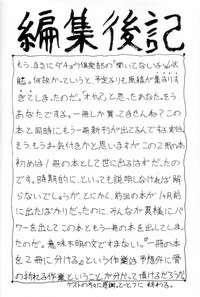 編集後記
もう、まさにダチョウ倶楽部の「聞いてないよ」状
態。何故かっていうと、予定よりも原稿が集まりす
ぎてしまったのだ。「オヤ?」と思ったあなた。そう
あなたですよ。一冊しか買ってきてんね?この
本と同時にもう一冊新刊が出てるんですよ実は。
もう、もうお気付きかと思いますが この2冊の本
初めは1冊の本として世に出るはずだったの
です。時期的に、といっても説明しなければ解
らないでしょうが、とにかく、前回の本が1ヶ月前
に出たばかりだったのに、そんな異様にパ
ワーを出して この本ともう一冊の本を出してしまっ
たのだ。意味不明の文ですまない。『一冊の本
を2冊に分ける』という作業は予想外に骨
の折れる作業ということが分かって頂けるだろうか。
ゲストの方々に感謝。とーとつに 終わる。